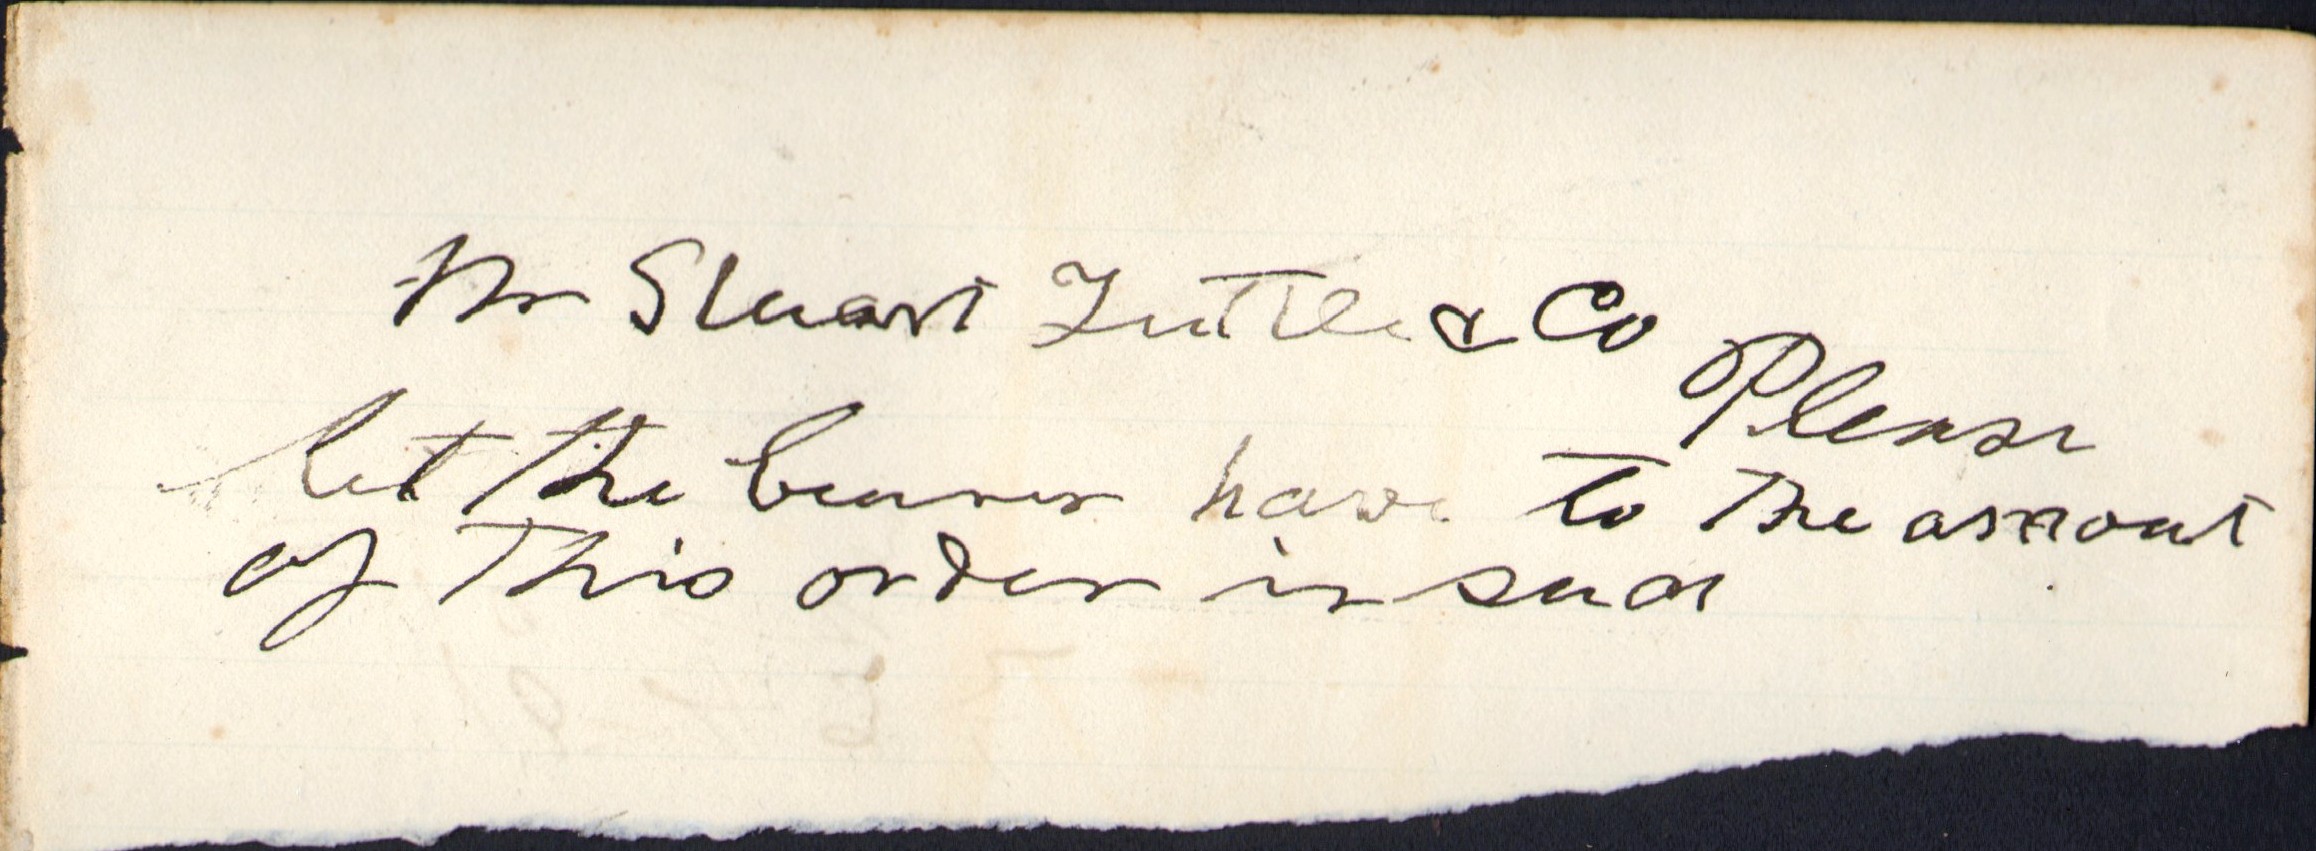 Mr Stuart Tuttle & Co
Please
let the bearer have to the amout
of this order in